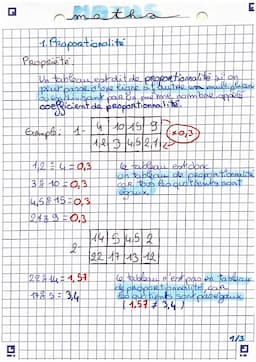 maths
1. Proportionalité
Propriété:
Un tableau est dit de proportionalité si on
peut passer d'une ligne à l'autre en multipliant
ou en divisant par le même nombre appelé
coefficient de proportionnalité.
Exemple: 1- 4 10 15 9 ×0,3
1,2 3 4,5 2,7
1,2 ÷ 4 = 0,3 Le tableau est donc
3 ÷ 10 = 0,3 un tableau de proportionalité
4,5 ÷ 15 = 0,3 car tous les quotients sont
2,7 ÷ 9 = 0,3 égaux
2- 14 5 4,5 2
22 17 13 12
22 ÷ 14 = 1,57 Le tableau n'est pas un tableau
17 ÷ 5 = 3,4 de proportionalité, car
les quotients sont pas égaux
(1,57 ≠ 3,4)
1/3